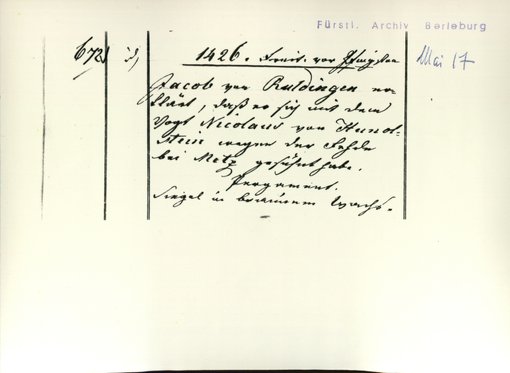 Fürstl. Archiv Berleburg
673 d, 1426. Freit. vor Pfingsten Mai 17
Jacob von Ruldingen er-
klärt, daß er sich mit dem
Vogt Nicolaus von Hunol-
stein wegen der Fehde
bei Metz gesühnt habe.
Pergament.
Siegel in braunem Wachs.